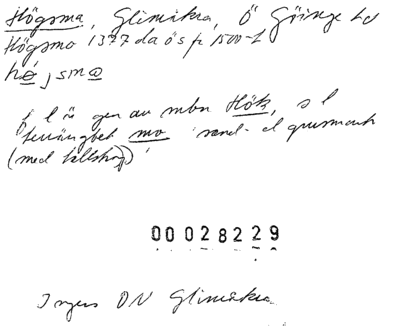 Högsma, Glimåkra, Ö Göinge hd
Högsmo 1377 da ö s f 1500-t
hé̱jsma̱
f l är gen av mbn Hök, s l
terrängbet mo 'sand- el grusmark
(med tallskog)'
00028229
Ingers ON Glimåkra